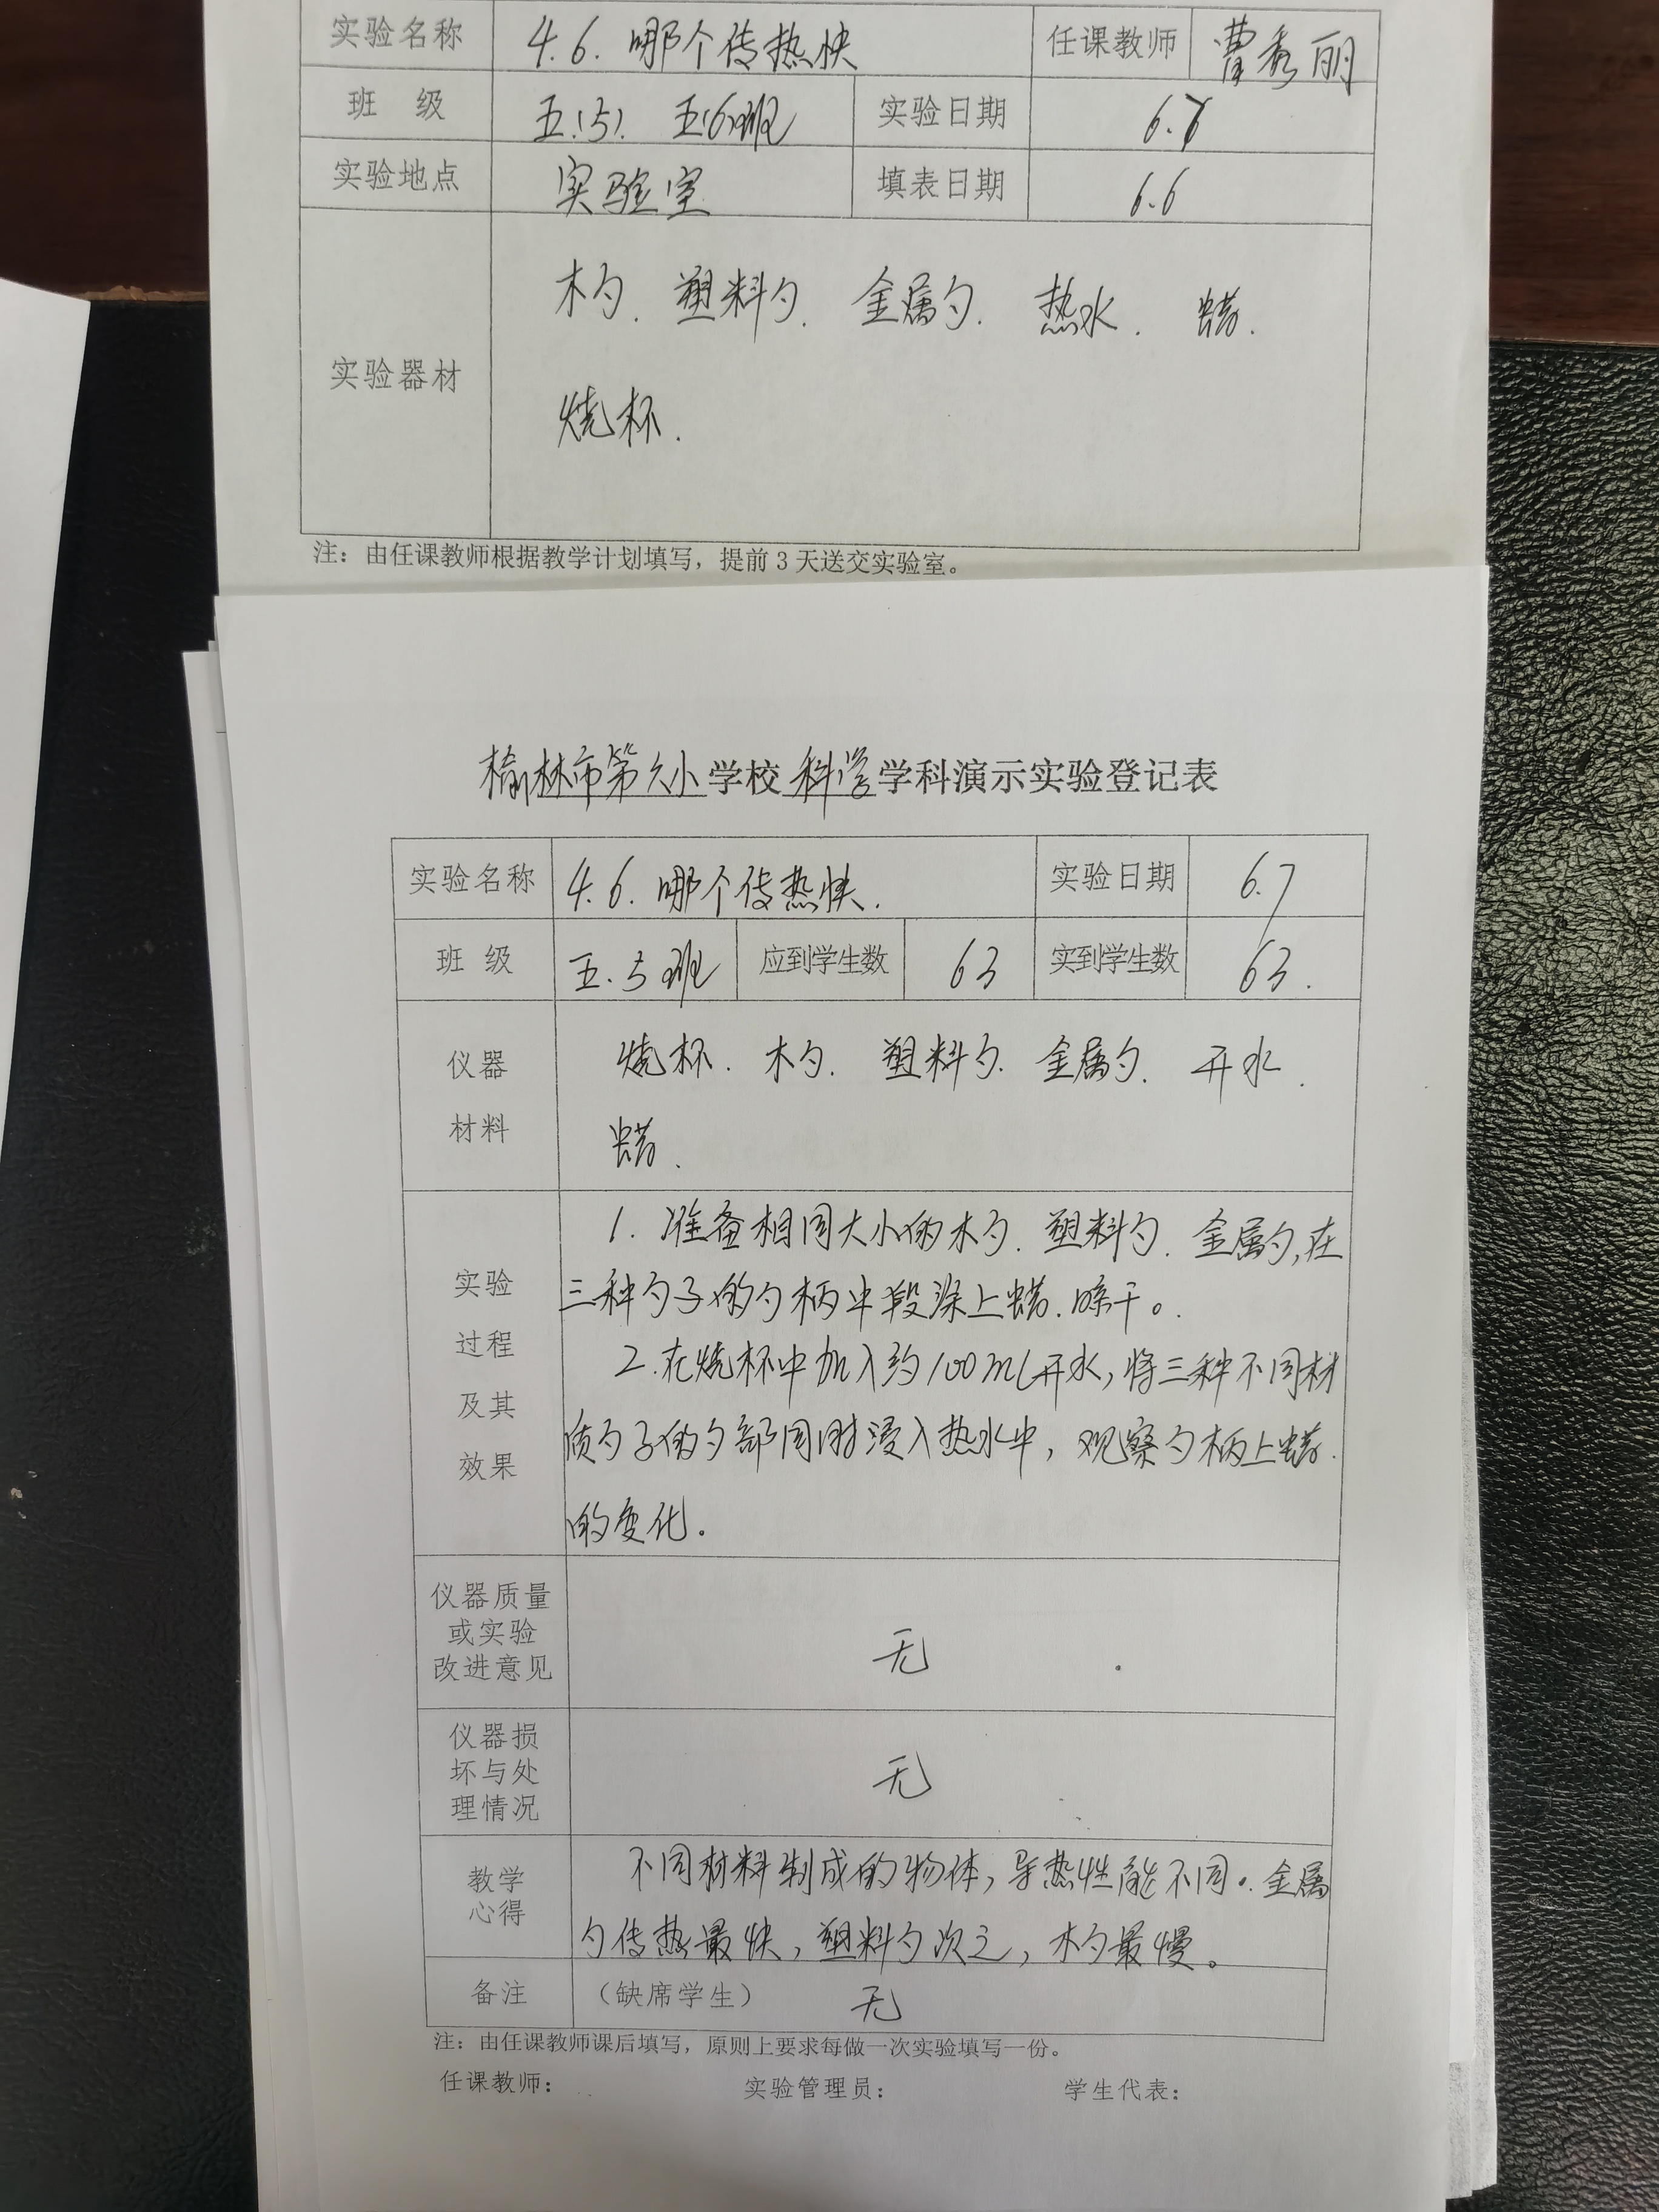 实验名称 4.6.哪个传热快 任课教师 曹秀丽
班 级 五(5). 五(6)班 实验日期 6.7
实验地点 实验室 填表日期 6.6
实验器材 木勺. 塑料勺. 金属勺. 热水. 蜡.
烧杯.
注：由任课教师根据教学计划填写，提前3天送交实验室。
榆林市第六小学校科学学科演示实验登记表
实验名称 4.6.哪个传热快. 实验日期 6.7
班 级 五.5班 应到学生数 63 实到学生数 63.
仪器 烧杯. 木勺. 塑料勺. 金属勺. 开水.
材料 蜡.
1.准备相同大小的木勺.塑料勺.金属勺,在
实验 三种勺子的勺柄中段涂上蜡.晾干。
过程 2.在烧杯中加入约100mL开水,将三种不同材
及其 质勺子的勺部同时浸入热水中,观察勺柄上蜡.
效果 的变化.
仪器质量
或实验 无
改进意见
仪器损
坏与处 无
理情况
教学 不同材料制成的物体,导热性能不同.金属
心得 勺传热最快,塑料勺次之,木勺最慢。
备注 （缺席学生） 无
注：由任课教师课后填写，原则上要求每做一次实验填写一份。
任课教师： 实验管理员： 学生代表：